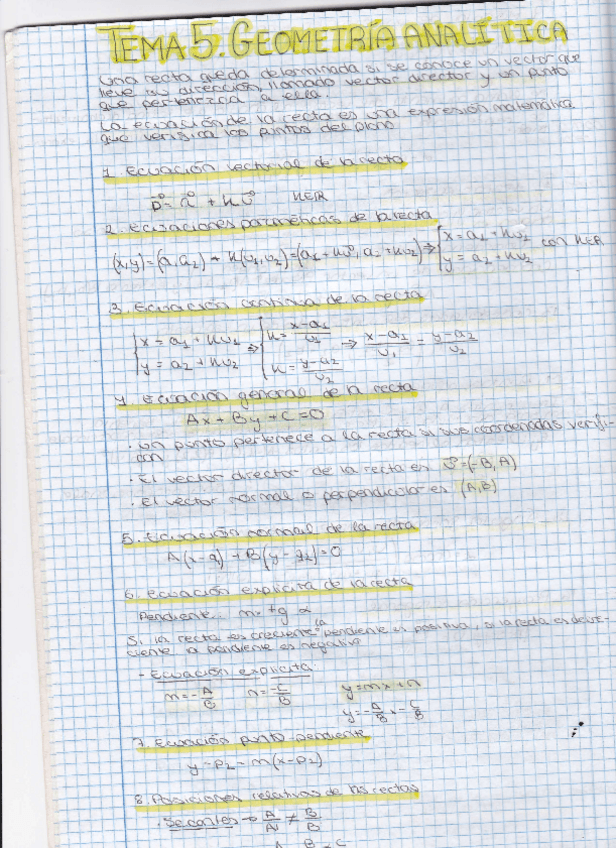 TEMA 5. GEOMETRÍA ANALÍTICA
Una recta queda determinada si se conoce un vector que
lleve su dirección, llamado vector director y un punto
que pertenezca a ella.
La ecuación de la recta es una expresión matemática
que verifica los puntos del plano
1. Ecuación vectorial de la recta
p = a + k v k∈R
2. Ecuaciones paramétricas de la recta
(x,y) = (a, a₂) + k(v₁,v₂) = (a₁+kv, a₂+kv₂) ⇒ { x = a₁ + kv₂ y = a₂ + kv₂ con k∈R
3. Ecuación continua de la recta
{ x = a₁ + kv₂ y = a₂ + kv₂ ⇒ { k = (x-a₁)/v₁ k = (y-a₂)/v₂ → (x-a₁)/v₁ = (y-a₂)/v₂
4. Ecuación general de la recta
Ax + By + C = 0
· Un punto pertenece a la recta si sus coordenadas verifi-
can
· El vector director de la recta es v = (-B, A)
· El vector normal o perpendicular es (A,B)
5. Ecuación normal de la recta
A(x-a) + B(y-a₂) = 0
6. Ecuación explícita de la recta
Pendiente.. m = tg α
Si la recta es creciente la pendiente es positiva, si la recta es decre-
ciente la pendiente es negativa
- Ecuación explícita
m = -A/B n = -C/B y = mx + n
y = -A/B x - C/B
7. Ecuación punto pendiente
y - p₂ = m(x-p₂)
8. Posiciones relativas de las rectas
· Secantes → A/A' ≠ B/B